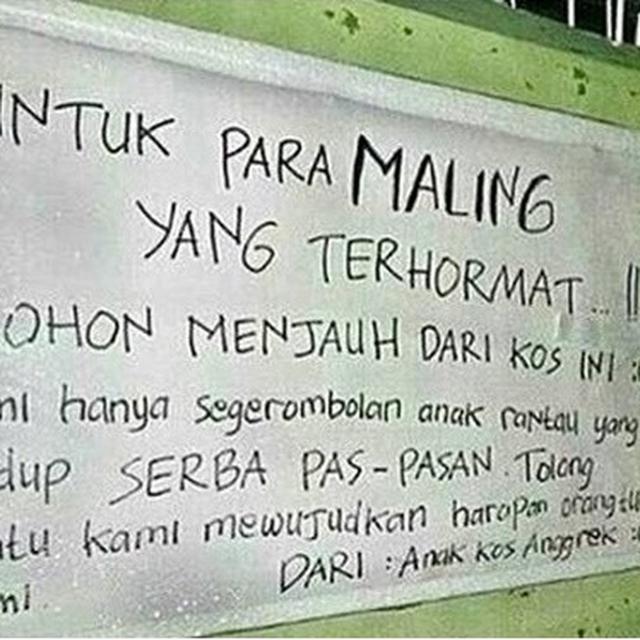 UNTUK PARA MALING
YANG TERHORMAT... !!
OHON MENJAUH DARI KOS INI :(
mi hanya segerombolan anak rantau yang
dup SERBA PAS-PASAN. Tolong
ntu kami mewujudkan harapan orangtu
mi. DARI : Anak Kos Anggrek :(